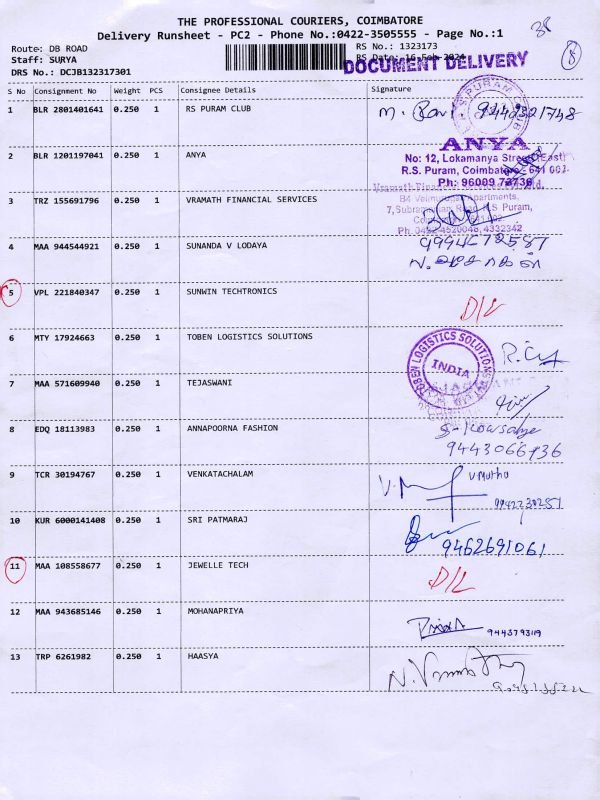 THE PROFESSIONAL COURIERS, COIMBATORE
38
Delivery Runsheet - PC2 - Phone No.:0422-3505555 - Page No.:1
8
Route: DB ROAD RS No.: 1323173
Staff: SURYA RS Date: 16-Feb-2024
DOCUMENT DELIVERY
DRS No.: DCJB132317301
S No Consignment No Weight PCS Consignee Details Signature
1 BLR 2801401641 0.250 1 RS PURAM CLUB
M. Ravi
2 BLR 1201197041 0.250 1 ANYA
ANYA
No: 12, Lokamanya Street (East)
R.S. Puram, Coimbatore - 641 002.
Ph: 96009 73736
3 TRZ 155691796 0.250 1 VRAMATH FINANCIAL SERVICES
7, Subramaniam Road, R.S. Puram,
Ph. 0422-4520046, 4332342
4 MAA 944544921 0.250 1 SUNANDA V LODAYA
5 VPL 221840347 0.250 1 SUNWIN TECHTRONICS
D/L
6 MTY 17924663 0.250 1 TOBEN LOGISTICS SOLUTIONS
TOBEN LOGISTICS SOLUTIONS
INDIA
7 MAA 571609940 0.250 1 TEJASWANI
8 EDQ 18113983 0.250 1 ANNAPOORNA FASHION
S-Kowsalye
9443066136
9 TCR 30194767 0.250 1 VENKATACHALAM
V Muthu
9942730251
10 KUR 6000141408 0.250 1 SRI PATMARAJ
9462691061
11 MAA 108558677 0.250 1 JEWELLE TECH
D/L
12 MAA 943685146 0.250 1 MOHANAPRIYA
9443793119
13 TRP 6261982 0.250 1 HAASYA